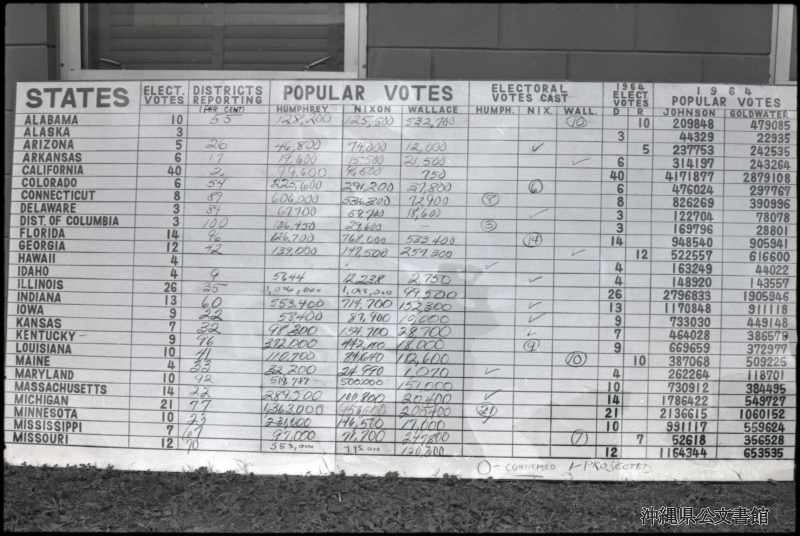 STATES ELECT. VOTES DISTRICTS REPORTING (PER CENT) POPULAR VOTES HUMPHREY NIXON WALLACE ELECTORAL VOTES CAST HUMPH. NIX. WALL. 1964 ELECT VOTES D R 1964 POPULAR VOTES JOHNSON GOLDWATER
ALABAMA 10 55 128,200 125,500 532,700 10 10 209848 479085
ALASKA 3 3 44329 22935
ARIZONA 5 20 46,800 74,000 12,000 ✓ 5 237753 242535
ARKANSAS 6 17 19,600 15,500 21,500 ✓ 6 314197 243264
CALIFORNIA 40 2 99,600 96,600 750 40 4171877 2879108
COLORADO 6 54 225,600 291,200 37,800 6 6 476024 297767
CONNECTICUT 8 87 606,000 72,900 8 8 826269 390996
DELAWARE 3 84 67,700 18,600 ✓ 3 122704 78078
DIST. OF COLUMBIA 3 100 — 3 3 169796 28801
FLORIDA 14 96 533,400 14 14 948540 905941
GEORGIA 12 42 139,000 147,500 259,300 ✓ 12 522557 616600
HAWAII 4 ✓ 4 163249 44022
IDAHO 4 9 5644 12,238 2,750 ✓ 4 148920 143557
ILLINOIS 26 35 99,500 26 2796833 1905946
INDIANA 13 60 553,400 719,700 152,300 ✓ 13 1170848 911118
IOWA 9 22 58400 87,900 10,000 ✓ 9 733030 449148
KANSAS 7 32 98,200 154,700 28,700 ✓ 7 464028 386579
KENTUCKY 9 96 372,000 442,100 18,000 9 9 669659 372977
LOUISIANA 10 41 110,700 102,600 10 10 387068 509225
MAINE 4 33 32,200 24,990 1,070 ✓ 4 262264 118701
MARYLAND 10 92 500,000 151,000 10 730912 384495
MASSACHUSETTS 14 22 289,500 20,400 ✓ 14 1786422 549727
MICHIGAN 21 77 1,363,000 205,400 21 21 2136615 1060152
MINNESOTA 10 23 146,500 17,600 ✓ 10 991117 559624
MISSISSIPPI 7 67 97,000 247,800 7 7 52618 356528
MISSOURI 12 70 553,000 120,300 12 1164344 653535
O - CONFIRMED ✓ PROJECTED
沖縄県公文書館